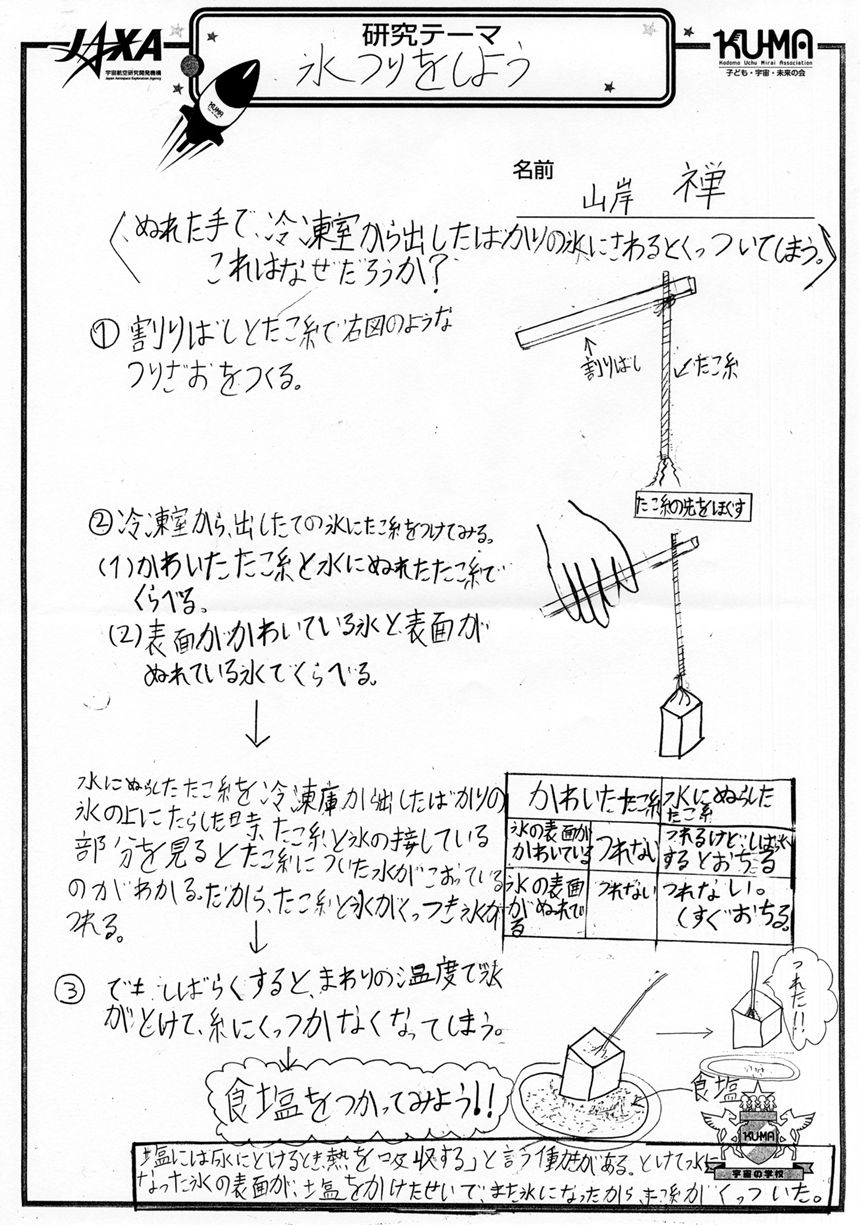 JAXA
宇宙航空研究開発機構
Japan Aerospace Exploration Agency
研究テーマ
氷つりをしよう
KU-MA
Kodomo Uchu Mirai Association
子ども・宇宙・未来の会
KU-MA
名前
山岸 禅
〈ぬれた手で、冷凍室から出したばかりの氷にさわるとくっついてしまう。
これはなぜだろうか?〉
① 割りばしとたこ糸で右図のような
つりざおをつくる。
↑
割りばし
←たこ糸
たこ糸の先をほぐす
②冷凍室から、出したての氷にたこ糸をつけてみる。
(1)かわいたたこ糸と水にぬれたたこ糸で
くらべる。
(2)表面がかわいている氷と、表面が
ぬれている氷でくらべる。
↓
水にぬらしたたこ糸を冷凍庫から出したばかりの
氷の上にたらした時、たこ糸と氷の接している
部分を見るとたこ糸についた水がこおっている
のがわかる。だから、たこ糸と氷がくっつき氷が
つれる。
かわいたたこ糸 水にぬらしたたこ糸
氷の表面がかわいている つれない つれるけど、しばらくするとおちる
氷の表面がぬれてる つれない つれない。(すぐおちる。
↓
③ でも、しばらくすると、まわりの温度で氷
がとけて、糸にくっつかなくなってしまう。
↓
食塩をつかってみよう!!
→
つれた!!
←食塩
KU-MA
宇宙の学校
塩には「水にとけるとき、熱を吸収する」と言う働きがある。とけて水に
なった氷の表面が、塩をかけたせいで、また氷になったから、たこ糸がくっついた。